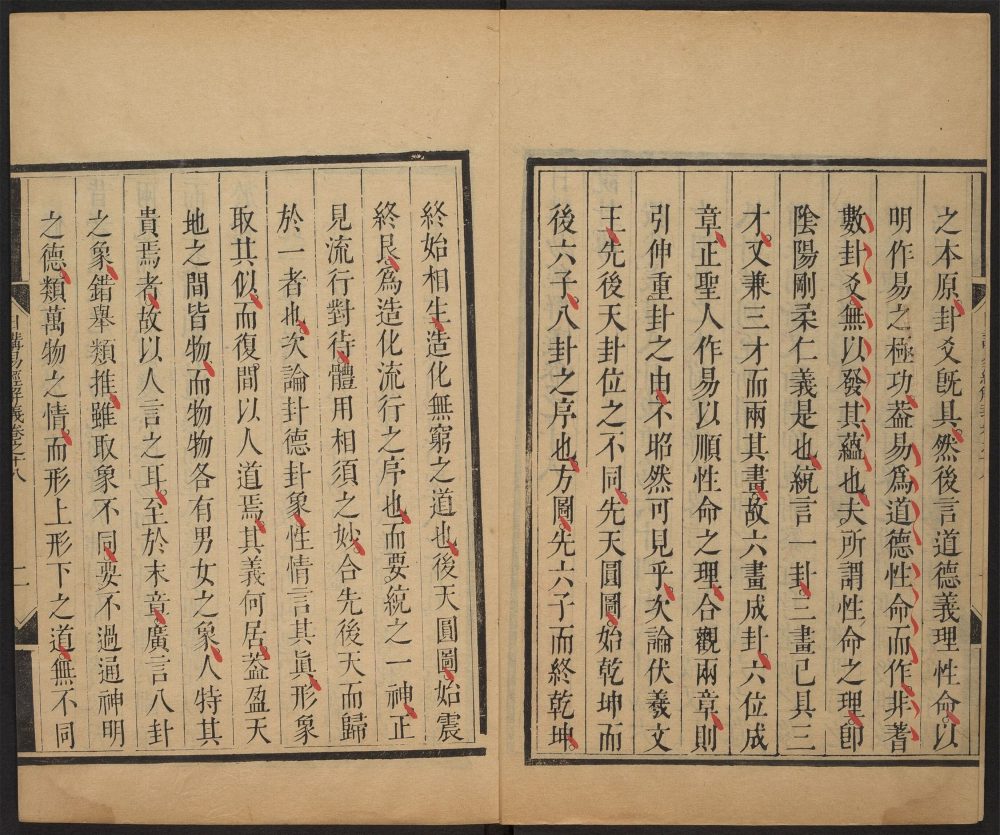 之本原卦爻旣具然後言道德義理性命以
明作易之極功葢易爲道德性命而作非蓍
數卦爻無以發其蘊也夫所謂性命之理卽
陰陽剛柔仁義是也統言一卦三畫已具三
才又兼三才而兩其畫故六畫成卦六位成
章正聖人作易以順性命之理合觀兩章則
引伸重卦之由不昭然可見乎次論伏羲文
王先後天卦位之不同先天圓圖始乾坤而
後六子八卦之序也方圖先六子而終乾坤
終始相生造化無窮之道也後天圓圖始震
終艮爲造化流行之序也而要統之一神正
見流行對待體用相須之妙合先後天而歸
於一者也次論卦德卦象性情言其眞形象
取其似而復間以人道焉其義何居葢盈天
地之間皆物而物物各有男女之象人特其
貴焉者故以人言之耳至於末章廣言八卦
之象錯舉類推雖取象不同要不過通神明
之德類萬物之情而形上形下之道無不同
日講易經解義卷之十八
二